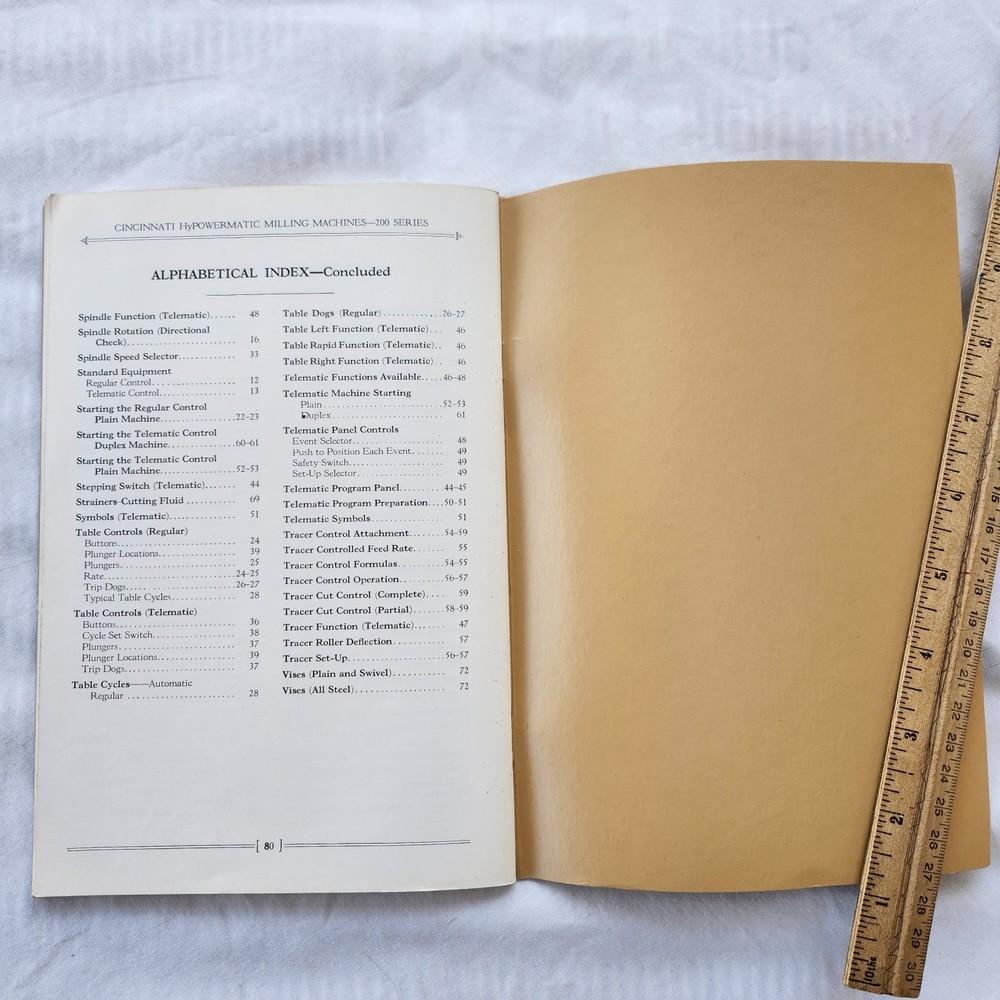 CINCINNATI HyPOWERMATIC MILLING MACHINES—200 SERIES
ALPHABETICAL INDEX—Concluded
Spindle Function (Telematic)...... 48
Spindle Rotation (Directional
Check)........................ 16
Spindle Speed Selector.............. 33
Standard Equipment
Regular Control.................. 12
Telematic Control................ 13
Starting the Regular Control
Plain Machine................22-23
Starting the Telematic Control
Duplex Machine..............60-61
Starting the Telematic Control
Plain Machine................52-53
Stepping Switch (Telematic)....... 44
Strainers-Cutting Fluid ............ 69
Symbols (Telematic)............... 51
Table Controls (Regular)
Buttons........................ 24
Plunger Locations............... 39
Plungers....................... 25
Rate..........................24-25
Trip Dogs.....................26-27
Typical Table Cycles............. 28
Table Controls (Telematic)
Buttons........................ 36
Cycle Set Switch................ 38
Plungers....................... 37
Plunger Locations............... 39
Trip Dogs...................... 37
Table Cycles——Automatic
Regular ....................... 28
Table Dogs (Regular) ............26-27
Table Left Function (Telematic)... 46
Table Rapid Function (Telematic).. 46
Table Right Function (Telematic).. 46
Telematic Functions Available.....46-48
Telematic Machine Starting
Plain .........................52-53
Duplex........................ 61
Telematic Panel Controls
Event Selector.................. 48
Push to Position Each Event....... 49
Safety Switch................... 49
Set-Up Selector................. 49
Telematic Program Panel.........44-45
Telematic Program Preparation....50-51
Telematic Symbols................ 51
Tracer Control Attachment........54-59
Tracer Controlled Feed Rate....... 55
Tracer Control Formulas..........54-55
Tracer Control Operation.........56-57
Tracer Cut Control (Complete).... 59
Tracer Cut Control (Partial).......58-59
Tracer Function (Telematic)....... 47
Tracer Roller Deflection........... 57
Tracer Set-Up...................56-57
Vises (Plain and Swivel)........... 72
Vises (All Steel).................. 72
[ 80 ]
10ths
1
2
3
4
5
6
7
8
9
16
17
18
19
20
21
22
23
24
25
26
27
28
29
30